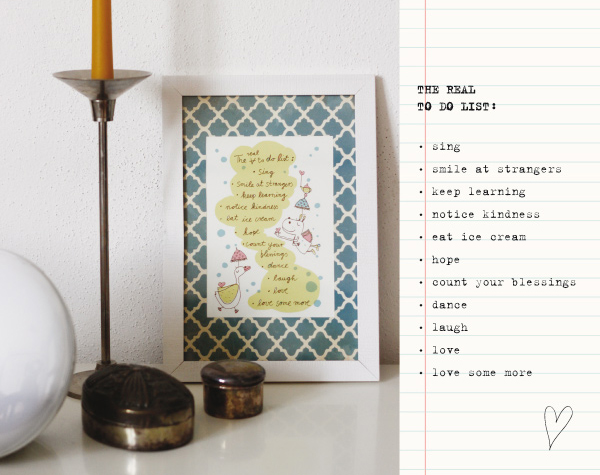 real
The to do list:
• Sing
• smile at strangers
• keep learning
• notice kindness
eat ice cream
• hope
• count your
blessings
• dance
• laugh
• love
• love some more
THE REAL
TO DO LIST:
• sing
• smile at strangers
• keep learning
• notice kindness
• eat ice cream
• hope
• count your blessings
• dance
• laugh
• love
• love some more